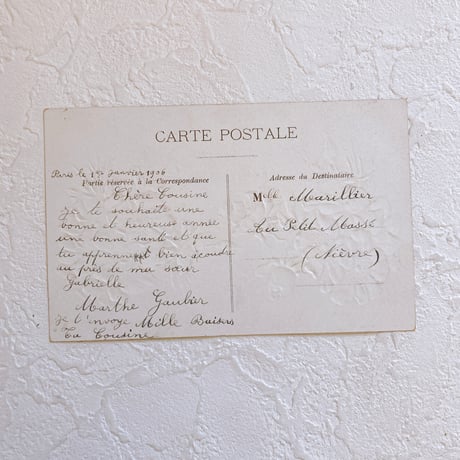 CARTE POSTALE
Paris le 1er Janvier 1906
Partie réservée à la Correspondance
Chère Cousine
je te souhaite une
bonne et heureuse année
une bonne santé et que
tu apprennent bien a coudre
au près de ma sœur
Gabrielle
Marthe Gaubier
je t'envoye Mille Baisers
Ta Cousine
Adresse du Destinataire
Melle Marillier
Au Petit Massé
(Nièvre)